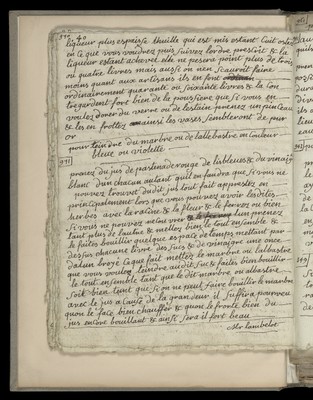 liqueur plus espaisse
en ce que vous voudrez puis suivez lordre prescrit & la
liqueur estant achevee elle ne pesera point plus de trois
ou quatre livres mais aussi on n'en scauroit faire
moins quant aux artisans ils en font
ordinairement quarante ou soixante livres & la
gardent fort bien de la poussiere que si vous en
voulez dorer du verre ou de lestain prenez un pinceau
& les en frottez ainsi les vases sembleront de pur
or
pour teindre du marbre ou de lalbastre en couleur
bleue ou violette
prenez du jus de pastenade rouge de lis bleus & du vinaigre
blanc d'un chacun autant quil en faudra que si vous ne
pouvez trouver dudit jus tout fait
principalement lors que vous pouvez avoir lesdites
herbes avec la racine & la fleur & le ferez ou bien
si vous ne pouvez avoir l'un prenez
tant plus de lautre & meslez bien le tout ensemble &
le faites bouillir quelque espace de temps mettant par
dessus chacune livre des jus & de vinaigre une once
dalun broyé ce que fait mettez le marbre ou lalbastre
que vous voulez teindre audit suc & faites bien bouillir
le tout ensemble tant que le dit marbre ou albastre
soit bien teint que si on ne peut faire bouillir le marbre
avec le jus a cause de la grandeur il suffira pourveu
quon le face bien chauffer & quon le frotte bien du
jus encore bouillant & ainsi sera il fort beau
Mr lambelot